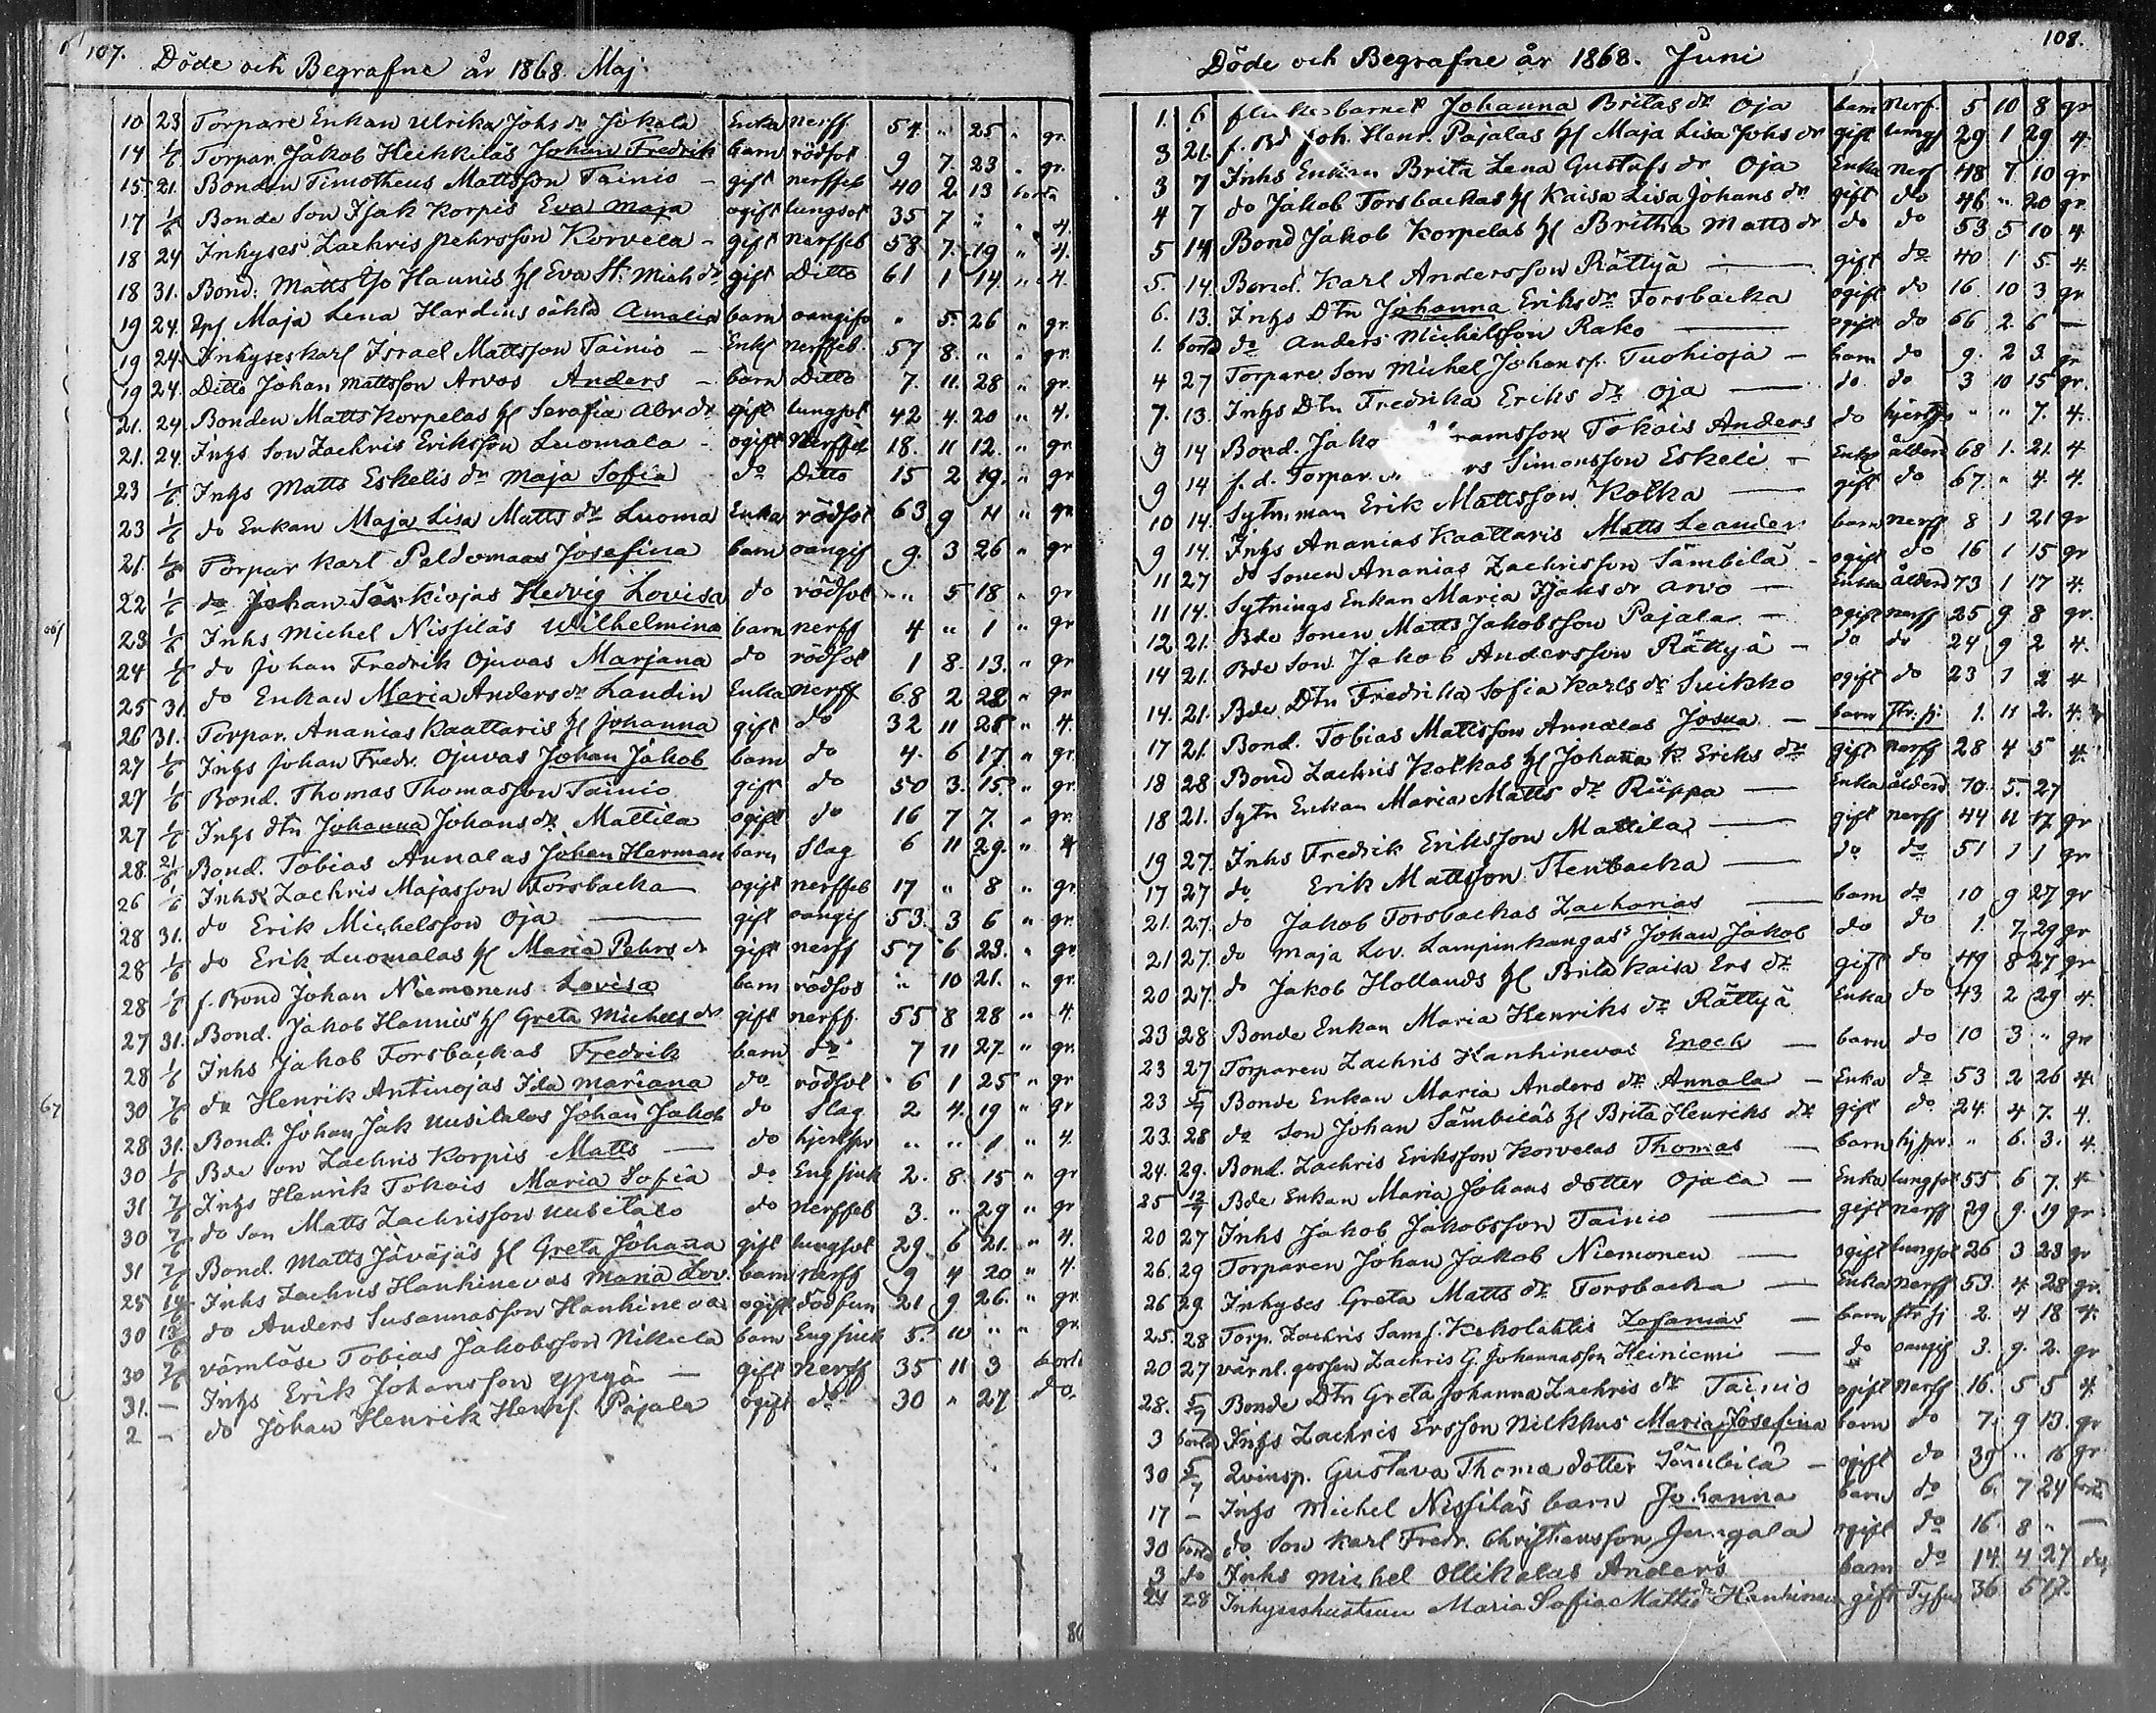 107. Döde och Begrafne år 1868. Maj
10 23 Torpare Enkan Ulrika Johs dr Jokela Enka nerff. 54 " 25 " gr.
14 1/6 Torpar. Jakob Heikkiläs Johan Fredrik barn rödsot 9 7. 23 " gr.
15 21. Bonden Timotheus Mattsson Tainio - gift nerffeb 40 2 13 borta
17 1/6 Bonde Son Isak Korpis Eva Maja ogift lungsot 35 7 " " 4.
18 24 Inhyses Zachris Pehrsson Korvela - gift nerffeb 58 7. 19 " 4.
18 31. Bond. Matts Haunis Eva St. Mich dr gift Ditto 61 1 14. " 4.
19 24. Maja Lena Hardins oäkta Amalia barn oangifv " 5. 26 " gr.
19 24. Inhyseskarl Israel Mattsson Tainio - Enkl nerffeb. 57 8. " " gr.
19 24. Ditto Johan Mattsson Arvos Anders - barn Ditto 7. 11. 28 " gr.
21. 24. Bonden Matts Korpelas Serafia Abr dr gift lungsot 42 4. 20 " 4.
21. 24. Inhs Son Zachris Eriksson Luomala - ogift Nerffeb 18. 11 12. " gr
23 1/6 Inhs Matts Eskelis dr Maja Sofia do Ditto 15 2 19. " gr
23 1/6 do Enkan Maja Lisa Matts dr Luoma Enka rödsot 63 9 11 " gr
21. 1/6 Torpar Karl Peldomaas Josefina barn oangif 9. 3 26 " gr
22 1/6 do Johan Särkiojas Hedvig Lovisa do rödsot " 5 18 " gr
23 1/6 Inhs Michel Nissiläs Wilhelmina barn nerff 4 " 1 " gr
24 1/6 do Johan Fredrik Ojuvas Marjana do rödsot 1 8. 13. " gr
25 31 do Enkan Maria Anders dr Laudin Enka nerff 68 2 28 " gr
26 31. Torpar. Ananias Kaattaris Johanna gift do 32 11 28 " 4.
27 1/6 Inhs Johan Fredr. Ojuvas Johan Jakob barn do 4. 6 17 " gr
27 1/6 Bond. Thomas Thomasson Tainio gift do 50 3. 15. " gr.
27 1/6 Inhs dtn Johanna Johans dr Mattila ogift do 16 7 7. " gr
28. 21/6 Bond. Tobias Annalas Johan Herman barn Slag 6 11 29. " 4
26 1/6 Inhs Zachris Majasson Forsbacka ogift nerffeb 17 " 8 " gr.
28 31. do Erik Michelsson Oja gift oangif 53. 3 6 " gr
28 1/6 do Erik Luomalas Maria Pehrs dr gift nerff 57 6 23. " gr
28 1/6 f. Bond Johan Niemonens Lovisa barn rödsot " 10 21. " gr.
27 31. Bond. Jakob Haunis Greta Michels dr gift nerff. 55 8 28 " 4.
28 1/6 Inhs Jakob Forsbackas Fredrik barn do 7 11 27. " gr.
30 7/6 do Henrik Antinojas Ida Mariana do rödsot 6 1 25 " gr
28 31. Bond. Johan Jak Uusitalos Johan Jakob do Slag. 2 4. 19 " gr
30 1/6 Bde Son Zachris Korpis Matts do " " 1 " 4.
31 7/6 Inhs Henrik Tokois Maria Sofia do Eng sjuk 2. 8. 15 " gr
30 7/6 do Son Matts Zachrisson Uusitalo do nerffeb 3. " 29 " gr
31 7/6 Bond. Matts Jäväjäs Greta Johana gift lungsot 29. 6 21. " 4.
25 14/6 Inhs Zachris Hanhinevas Maria Lov. barn nerff 9 4 20 " 4.
30 13/6 do Anders Susannasson Hanhineva ogift dödfun 21 9. 26. " gr.
30 7/6 värnlöse Tobias Jakobsson Nikula barn Eng sjuk 5. 10 " " gr.
31. - Inhs Erik Johansson Yppyä - gift nerff 35 11 3 borta
2 - do Johan Henrik Henrs. Pajala ogift do 30 " 27 do.
67
80
108.
Döde och Begrafne år 1868. Juni
1. 6 barnet Johanna Britas dr Oja barn nerf. 5 10 8 gr
3 21. f. Bd Joh. Henr. Pajalas Maja Lisa Johs dr gift lungs 29 1 29 4.
3 7 Inhs Enkan Brita Lena Gustafs dr Oja Enka nerf 48 7 10 gr
4 7 do Jakob Forsbackas Kaisa Lisa Johans dr gift do 46 " 20 gr.
5 14 Bond Jakob Korpelas Britha Matts dr do do 53 5 10 4
5. 14. Bond. Karl Andersson Rättyä gift do 40 1 5. 4.
6. 13. Inhs Dtn Johanna Eriks dr Forsbacka ogift do 16 10 3 gr
1. borta do Anders Michelsson Rako ogift do 66 2 6 —
4 27 Torpare Son Michel Johanss. Tuohioja - barn do 9. 2 3. gr
7. 13. Inhs Dtn Fredrika Eriks dr Oja do do 3 10 15 gr.
9 14 Bond. Jako ramsson Tokois Anders do " " 7. 4.
9 14 f. d. Torpar. rs Simonsson Eskeli - ålderd 68 1. 21. 4
10 14. Sytn. man Erik Mattsson Kolka gift do 67. " 4. 4.
9 14. Inhs Ananias Kaattaris Matts Leander barn nerff 8 1 21 gr
11 27 do Sonen Ananias Zachrisson Sämbilä - ogift do 16 1 15 gr
11 14. Sytnings Enkan Maria Isaks dr Arvo Enka ålderd 73 1 17 4.
12 21. Bde Sonen Matts Jakobsson Pajala ogift nerff 25 9 8 gr.
14 21. Bde Son Jakob Andersson Rättyä - do do 24 9 2 4.
14. 21. Bde. Dtn Fredrika Sofia Karls dr Suikko ogift do 23 1 2 4
17 21. Bond. Tobias Mattsson Annalas Josua barn str. sj. 1. 11 2. 4.
18 28 Bond Zachris Kolkas Johana K. Eriks dr gift nerff 28 4 5 4.
18 21. Sytn Enkan Maria Matts dr Riippa Enka ålderd 70. 5. 27
19 27. Inhs Fredrik Eriksson Mattila gift nerff 44 11 17. gr
17 27 do Erik Mattsson Stenbacka do do 51 1 1 gr
21. 27. do Jakob Forsbackas Zacharias barn do 10 9 27 gr
21 27. do Maja Lov. Lampinkangas Johan Jakob do do 1. 7. 29 gr
20 27. do Jakob Hollands Brita Kaisa Ers dr gift do 49 8 27 gr
23 28 Bonde Enkan Maria Henriks dr Rättyä Enka do 43 2 29 4.
23 27 Torparen Zachris Hanhinevas Enoch barn do 10 3 " gr
23 5/7 Bonde Enkan Maria Anders dr Annala - Enka do 53 2 26 4.
23. 28 do Son Johan Sämbiläs Brita Henriks dr gift do 24. 4 7. 4.
24. 29. Bond. Zachris Eriksson Korvelas Thomas barn hjspr. " 6. 3. 4.
25 12/7 Bde Enkan Maria Johans dotter Ojala - Enka lungsot 55 6 7. 4
20 27 Inhs Jakob Jakobsson Tainio gift nerff 29 9. 19 gr
26. 29 Torparen Johan Jakob Niemonen ogift lungsot 26 3 23 gr
26 29. Inhyses Greta Matts dr Forsbacka Enka nerff 53. 4 28 gr.
25. 28 Torp. Zachris Sams. Kekolahtis Zefanias barn str. sj 2. 4 18 4.
20 27 värnl. gossen Zachris G. Johannasson Heiniemi do oangif 3. 9. 2. gr
28. 5/7 Bonde Dtn Greta Johanna Zachris dr Tainio ogift nerff 16. 5 5 4.
3 borta Inhs Zachris Ersson Nilkkus Maria Josefina barn do 7. 9 13. gr
30 5/7 Qvinsp. Gustava Thomæ dotter Sämbilä - ogift do 39 " 16 gr
17 - Inhs Michel Nissiläs barn Johanna barn do 6. 7 24 borta
30 borta do Son Karl Fredr. Christiansson Jungala ogift do 16. 8 " —
3 do Inhs Michel Ollikalas Anders barn do 14. 4 27 do,
24 28 Inhyseshustrun Maria Sofia Matts dr Hanhineva gift Tyfus 36 5 17.